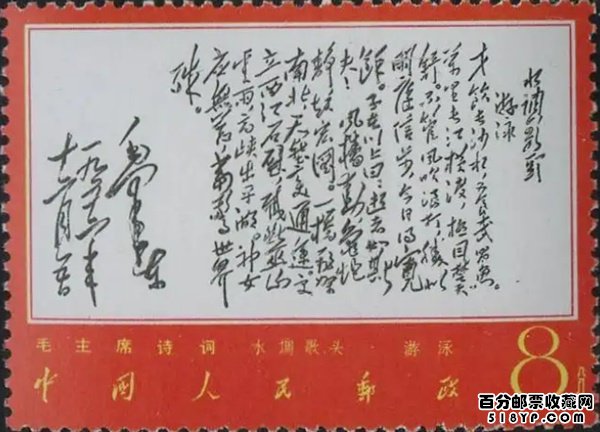 水调歌头
游泳
才飲长沙水,又食武昌魚。
萬里长江横渡,极目楚天
舒。不管风吹浪打,胜似
闲庭信步,今日得宽
馀。子在川上曰:逝者如斯
夫!风樯动,龟蛇
静,起宏圖。一橋飞架
南北,天堑变通途。更
立西江石壁,截断巫山
云雨,高峡出平湖。神女
应無恙,当驚世界
殊。
毛泽东
一九五六年
十二月五日
毛主席诗词 水调歌头 游泳
中國人民郵政
8分
百分邮票收藏网
518YP.com